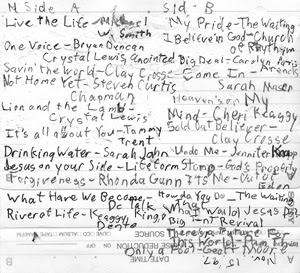 N Side A Sid-B
Live the Life - Michael W Smith
My Pride - The Waiting
I Believe in God - Church of Rhythym
One Voice - Bryan Duncan
Crystal Lewis anointed
Big Deal - Carolyn Arends
Savin' the World - Clay Crosse
Come In - Sarah Masen
Not Home Yet - Steven Curtis Chapman
Heaven's on My Mind - Cheri Keaggy
Lion and the Lamb - Crystal Lewis
Sold Out Believer - Clay Crosse
It's all About You - Tammy Trent
Drinking Water - Sarah John
Undo Me - Jennifer Knapp
Jesus on your Side - Lifeform
Stomp - God's Property
Forgiveness - Rhonda Gunn
It's Me - Out of Eden
What Have We Become - Dc Talk
How do You Do - The Waiting
River of Life - Keaggy, King, Dente
What Would Jesus Do - Big Tent Revival
There's a Future For This World - Pam Thum
Only a God - Geoff Moore
Nov 15 '97
DATE/TIME
NOISE REDUCTION
SOURCE
A
B